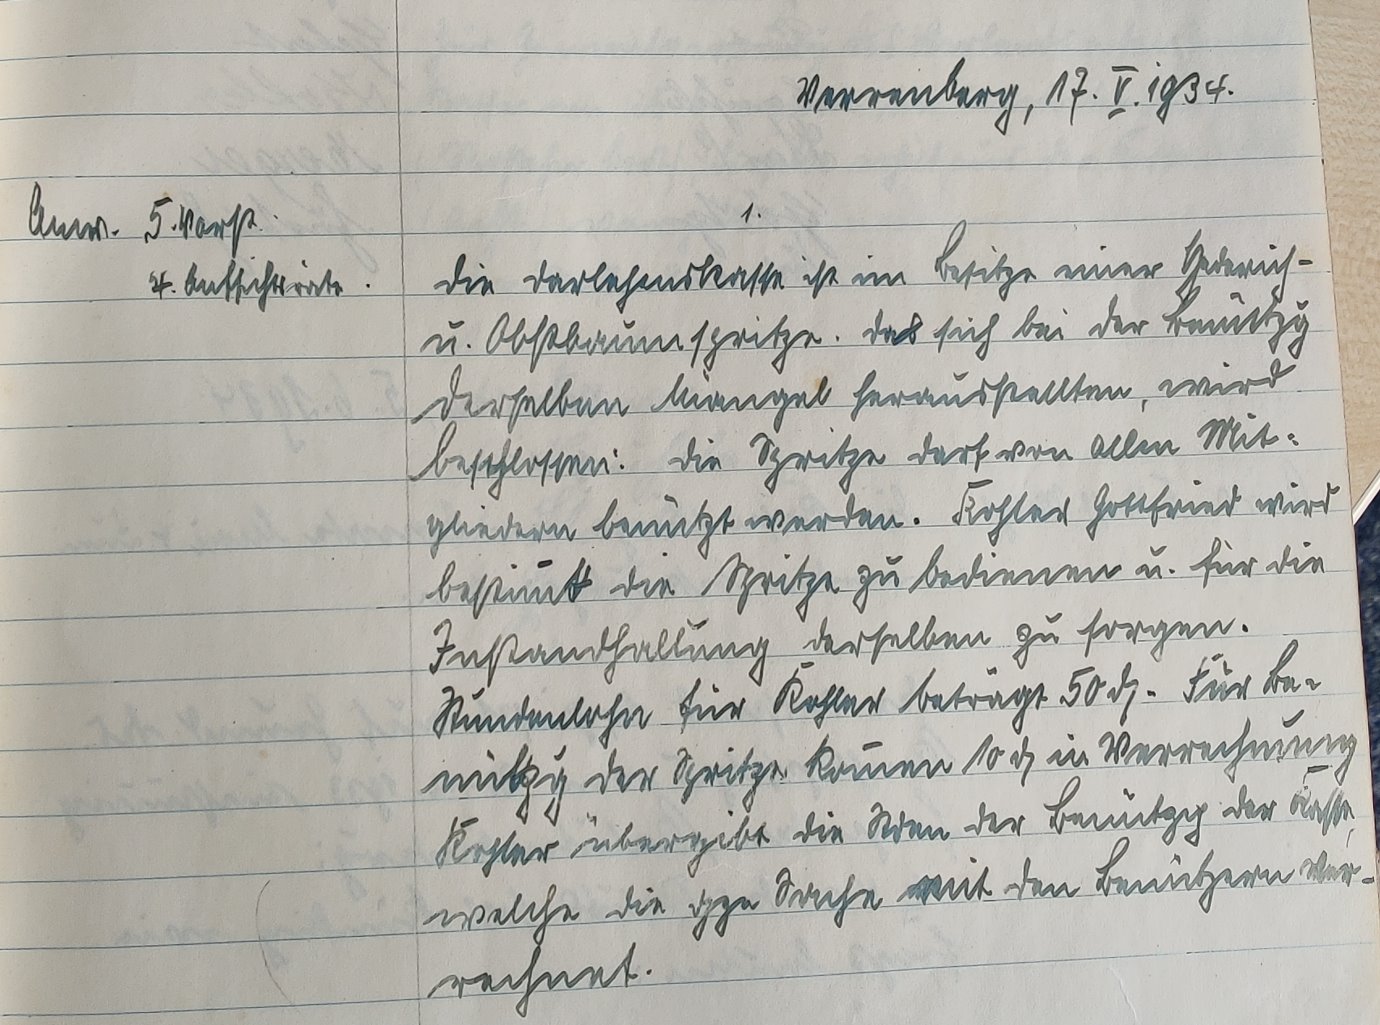 Verrenberg, 17. V. 1934.
Anw. 5. Vorst.
4. Aufsichtsräte.
1.
Die Darlehenskasse ist im Besitze einer Hederich-
u. Obstbaumspritze. Das sich bei der Benützg
derselben Mängel herausstellten, wird
beschlossen: Die Spritze darf von allen Mit-
gliedern benützt werden. Kohler Gottfried wird
bestim̄t die Spritze zu bedienen u. für die
Instandhaltung derselben zu sorgen.
Stundenlohn für Kohler beträgt 50 ₰. Für Be-
nützg der Spritze kom̄en 10 ₰ in Verrechnung
Kohler übergibt die Stden der Benützg der Kasse,
welche die gze Sache mit den Benützern ver-
rechnet.